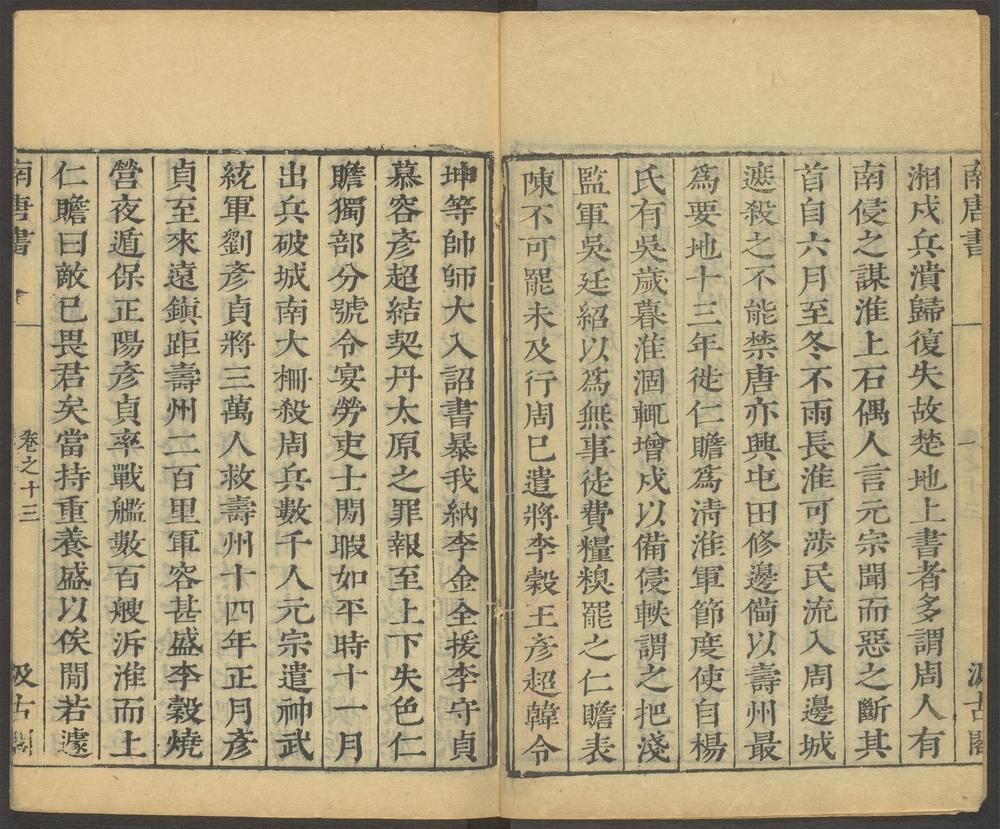 南唐書
一
汲古閣
湘戍兵潰歸復失故楚地上書者多謂周人有
南侵之謀淮上石偶人言元宗聞而惡之斷其
首自六月至冬不雨長淮可涉民流入周邊城
遮殺之不能禁唐亦興屯田修邊備以壽州最
為要地十三年徙仁贍為清淮軍節度使自楊
氏有吳歲暮淮涸輒增戍以備侵軼謂之把淺
監軍吳廷紹以為無事徒費糧糗罷之仁贍表
陳不可罷未及行周已遣將李榖王彥超韓令
坤等帥師大入詔書暴我納李金全援李守貞
慕容彥超結契丹太原之罪報至上下失色仁
贍獨部分號令宴勞吏士閒暇如平時十一月
出兵破城南大柵殺周兵數千人元宗遣神武
統軍劉彥貞將三萬人救壽州十四年正月彥
貞至來遠鎮距壽州二百里軍容甚盛李榖燒
營夜遁保正陽彥貞率戰艦數百艘泝淮而上
仁贍曰敵已畏君矣當持重養盛以俟閒若遽
南唐書
卷之十三
汲古閣